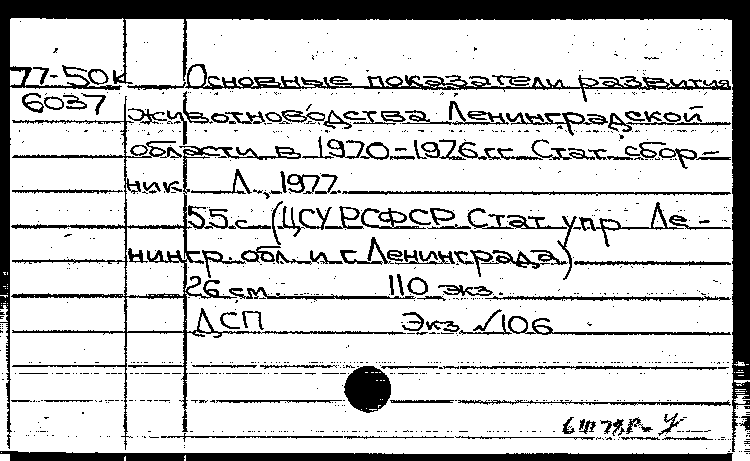 77-50к Основные показатели развития
6037 животноводства Ленинградской
области в 1970-1976 гг. Стат. сбор-
ник. Л., 1977.
55 с. (ЦСУ РСФСР. Стат. упр. Ле-
нингр. обл. и г. Ленинграда)
26 см. 110 экз.
ДСП Экз. №106
6 III 78